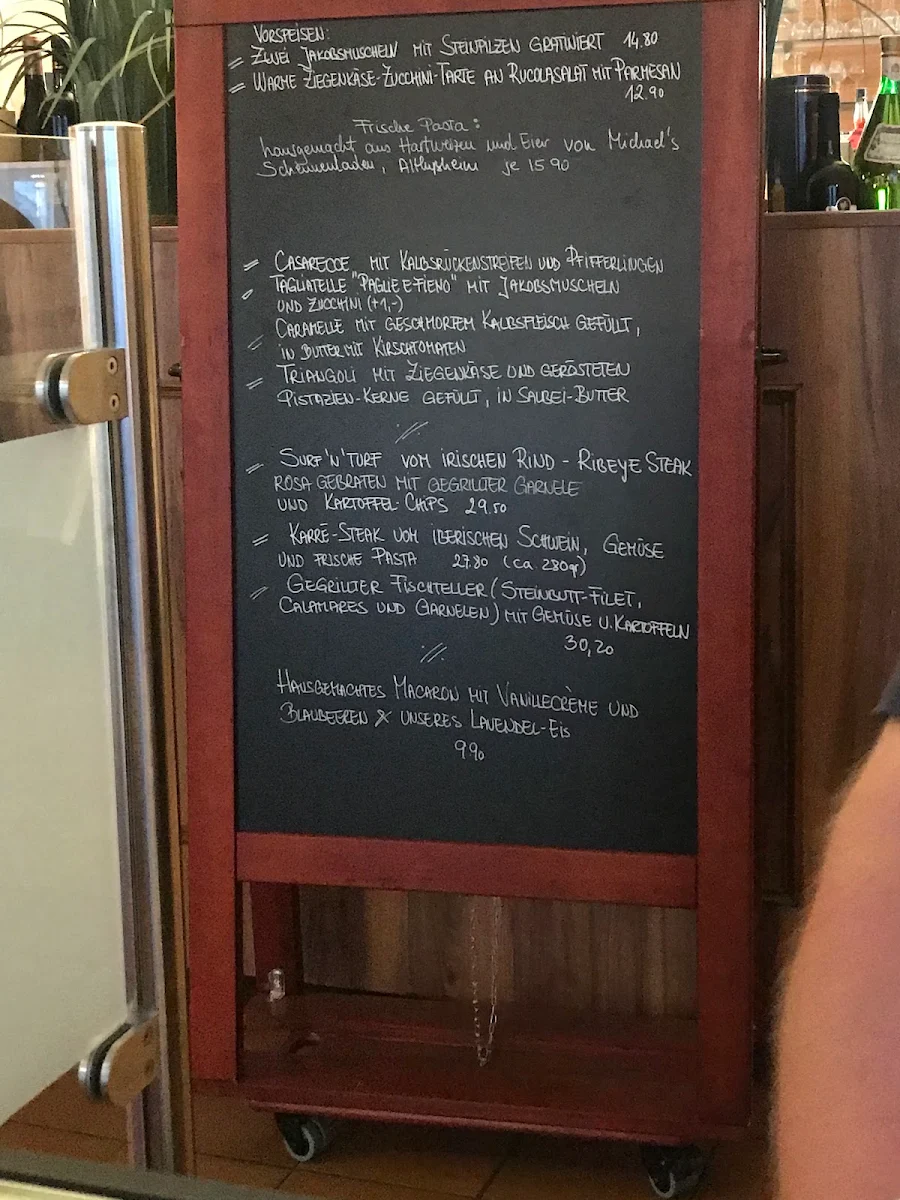 VORSPEISEN:
= ZWEI JAKOBSMUSCHELN MIT STEINPILZEN GRATINIERT 14.80
= WARME ZIEGENKÄSE-ZUCCHINI-TARTE AN RUCOLASALAT MIT PARMESAN
12.90
Frische Pasta:
hausgemacht aus Hartweizen und Eier von Michael's
Scheunenladen, Altlußheim je 15 90
= CASARECCE MIT KALBSRÜCKENSTREIFEN UND PFIFFERLINGEN
TAGLIATELLE "PAGLIE E FIENO" MIT JAKOBSMUSCHELN
UND ZUCCHINI (+1,-)
CARAMELLE MIT GESCHMORTEM KALBSFLEISCH GEFÜLLT,
IN BUTTER MIT KIRSCHTOMATEN
= TRIANGOLI MIT ZIEGENKÄSE UND GERÖSTETEN
PISTAZIEN-KERNE GEFÜLLT, IN SALBEI-BUTTER
//
= SURF 'N' TURF VOM IRISCHEN RIND - RIBEYE STEAK
ROSA GEBRATEN MIT GEGRILLTER GARNELE
UND KARTOFFEL-CHIPS 29.50
= KARRÉ-STEAK VOM IBERISCHEN SCHWEIN, GEMÜSE
UND FRISCHE PASTA 27.80 (ca. 280gr)
= GEGRILLTER FISCHTELLER (STEINBUTT-FILET,
CALAMARES UND GARNELEN) MIT GEMÜSE U. KARTOFFELN
30,20
//
HAUSGEMACHTES MACARON MIT VANILLECRÈME UND
BLAUBEEREN & UNSERES LAVENDEL-EIS
9.90